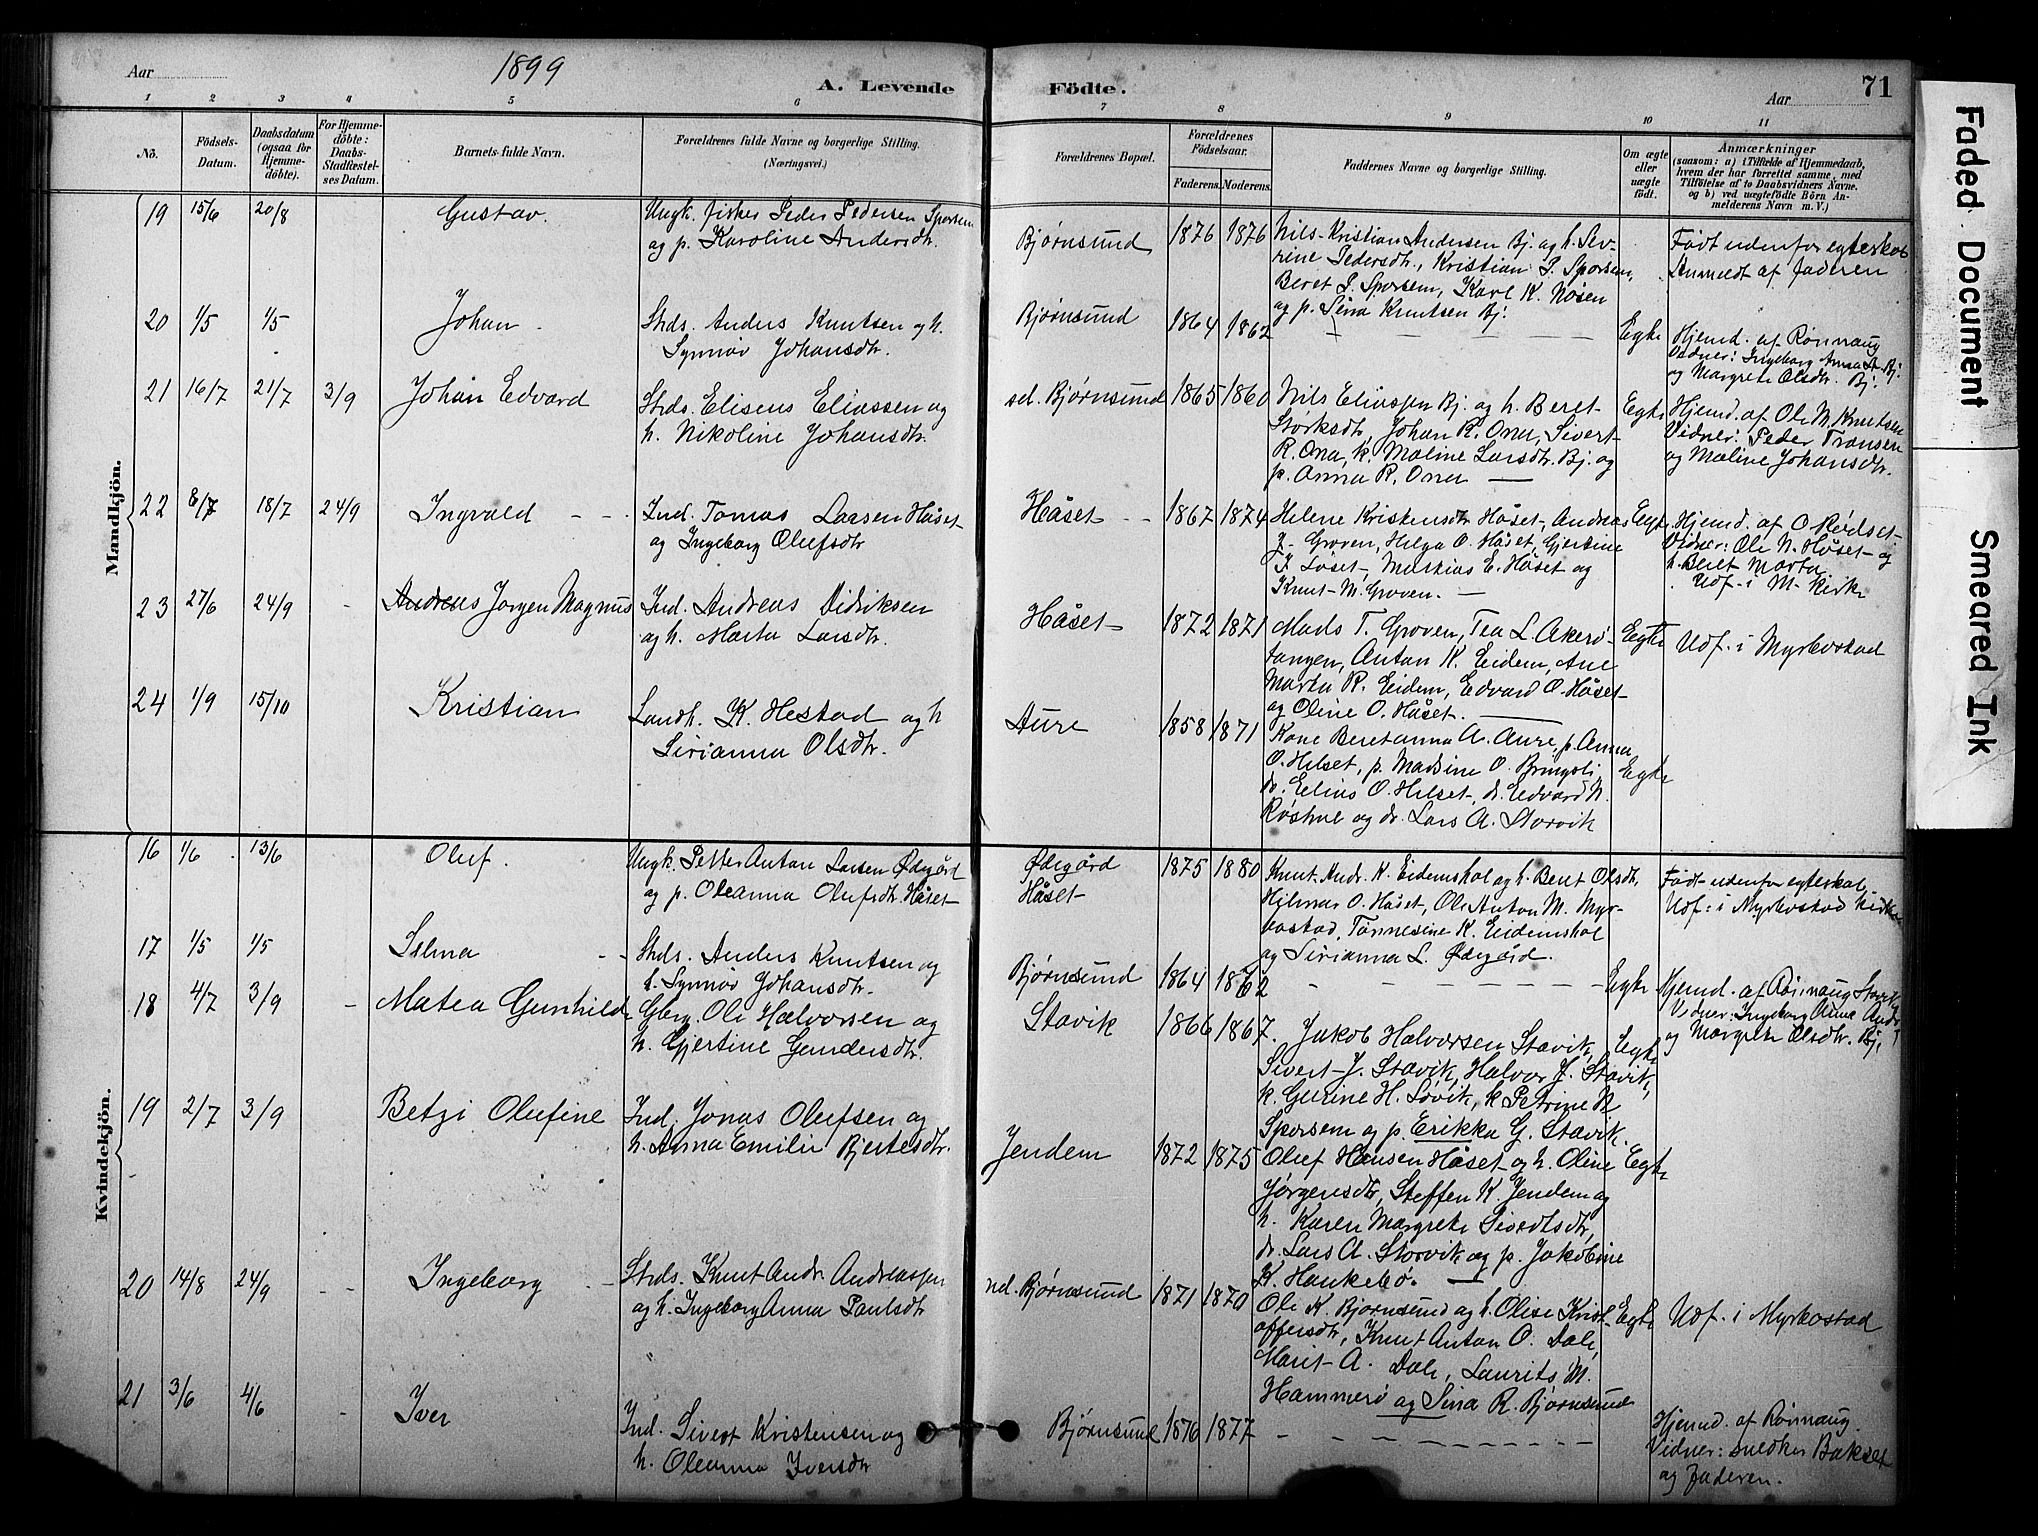 Aar 1899
A. Levende Födte.
Aar 71
1 2 3 4 5 6 7 8 9 10 11
No.
Födsels-Datum.
Daabsdatum (ogsaa for Hjemmedöbte).
For Hjemmedöbte: Daabs-Stadfæstelses Datum.
Barnets fulde Navn.
Forældrenes fulde Navne og borgerlige Stilling.
(Næringsvei.)
Forældrenes Bopæl.
Forældrenes Födselsaar.
Faderens. Moderens.
Faddernes Navne og borgerlige Stilling.
Om ægte eller uægte födt.
Anmærkninger
(saasom: a) i Tilfælde af Hjemmedaab, hvem der har forrettet samme, med Tilföielse af to Daabsvidners Navne, og b) ved uægtefödte Börn Anmelderens Navn m. V.)
Mandkjön.
19 15/6 20/8 Gustav.
Ungk. fisker Peder Pedersen Sporsem
og p. Karoline Andersdtr.
Bjørnsund 1876 1876
Nils Kristian Andersen Bj. og h. Sev-
rine Pedersdtr, Kristian P. Sporsem,
Beret P. Sporsem, Karl K. Nøsen
og p. Sina Knutsen Bj.
Født udenfor egteskab
Anmeldt af Faderen
20 1/5 1/5 Johan
Strds. Anders Knutsen og h.
Synnøv Johansdtr.
Bjørnsund 1864 1862
Egte
Hjemd. af Rønnaug
Vidner: Ingeborg Anna A. Bj.
og Margrete Olsdtr. Bj.
21 16/7 21/7 3/9 Johan Edvard
Strds. Eliseus Eliassen og
h. Nikoline Johansdtr.
sd. Bjørnsund 1865 1860
Nils Eliassen Bj. og h. Beret
Størksdtr, Johan R. Ona, Sivert
R. Ona, k. Maline Larsdtr. Bj. og
p. Anna R. Ona
Egte
Hjemd. af Ole N. Knutsen
Vidner: Peder Fransen
og Maline Johansdtr.
22 8/7 18/7 24/9 Ingvald
Ind. Tomas Larsen Håset
og Ingeborg Olufsdtr
Håset 1867 1874
Helene Kristensdtr Håset, Andreas
J. Groven, Helga O. Håset, Gjertine
Mathias E. Håset og
Knut M. Groven.
Egte
Hjemd. af O Rødset
Vidner: Ole N. Håset og
h. Beret Marta
Udf. i M. Kirke
23 27/6 24/9 Andreas Jørgen Magnus
Ind. Andreas Didriksen
og h. Marta Larsdtr.
Håset 1872 1871
Mads T. Groven, Tea L. Akerø-
tangen, Anton K. Eidem, Ane
Marta R. Eidem, Edvard O. Håset
og Oline O. Håset.
Egte
Udf. i Myrbostad
24 1/9 15/10 Kristian
Landh. K. Hestad og h
Sirianna Olsdtr.
Aure 1858 1871
Kone Beretanna A. Aure, p. Anna
O. Helset, p. Madsine O. Bringsli
dr. Elias O. Helset, dr. Edvard N.
og dr. Lars A. Storvik
Egte
Kvindekjön.
16 1/6 13/6 Oluf.
Ungk. Petter Anton Larsen Ødegård
og p. Oleanna Olufsdtr. Håset
Ødegård
Håset
1875 1880
Knut Andr. K. Eidemshol og h. Beret Olsdtr,
Hilmar O. Håset, Ole Anton M. Myr-
bostad, Tonnesine K. Eidemshol
og Sirianna L. Ødegård.
Født udenfor egteskab.
Udf: i Myrbostad kirke
17 1/5 1/5 Selma
Strds. Anders Knutsen og
h. Synnøv Johansdtr.
Bjørnsund 1864 1862
Egte
Hjemd. af Rønnaug
Vidner: Ingeborg Anna
og Margrete Olsdtr. Bj.
18 4/7 3/9 Matea Gunhilda
Gbrg. Ole Halvorsen og
h. Gjertine Gundersdtr.
Stavik 1866 1867.
Jakob Halvorsen Stavik,
Sivert J. Stavik, Halvor J. Stavik,
k. Gurine H. Søvik, k Petrine N
Sporsem og p. Erikka G. Stavik.
Egte
19 2/7 3/9 Betzi Olufine
Ind. Jonas Olufsen og
h. Anna Emilie Bjertesdtr.
Jendem 1872 1875
Oluf Hansen Håset og h. Oline
Jørgensdtr, Steffen K. Jendem og
h. Karen Margrete Sivertsdtr,
dr. Lars A. Storvik og p. Jakobine
K. Haukebø.
Egte
20 14/8 24/9 Ingeborg
Strds. Knut Andr. Andreassen
og h. Ingeborg Anna Paulsdtr
nd. Bjørnsund 1871 1870
Ole K. Bjørnsund og h. Olise Krist-
offersdtr, Knut Anton O. Dale,
Marit A. Dale, Laurits M.
Hammerø og Sina R. Bjørnsund
Egte
Udf. i Myrbostad
21 3/6 4/6 Iver
Ind. Sivert Kristensen og
h. Oleanna Iversdtr
Bjørnsund 1876 1877
Hjemd. af Rønnaug.
Vidner: snedker Bakset
og Faderen.
Faded Document
Smeared Ink